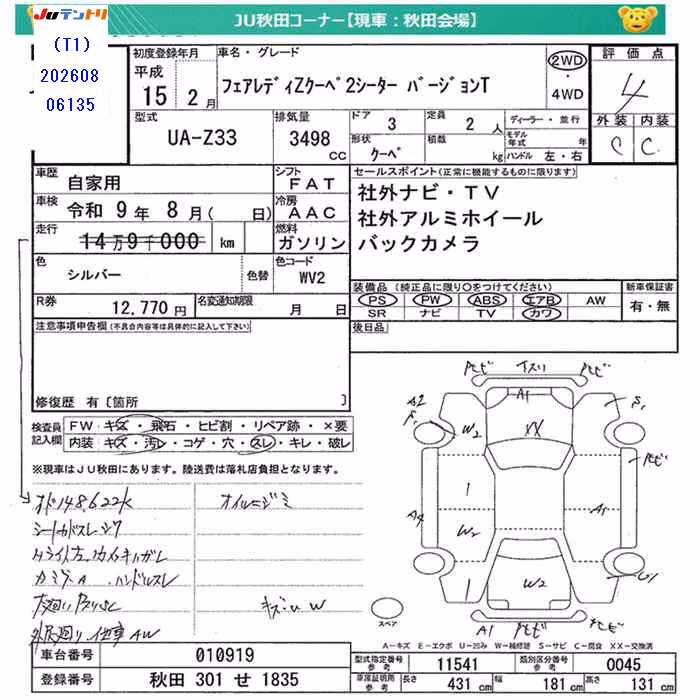 JUテントリ
JU秋田コーナー【現車：秋田会場】
(T1)
202608
06135
初度登録年月
平成
15 2月
車名・グレード
フェアレディZクーペ2シーター バージョンT
2WD
・
4WD
評価点
4
外装 内装
C C
型式
UA-Z33
排気量
3498
CC
ドア 3
定員 2 人
ディーラー・並行
形状
クーペ
積載
kg
モデル年式 年
ハンドル 左・右
車歴
自家用
シフト
FAT
車検
令和 9年 8月( 日)
冷房
AAC
走行
14万9千000 km
燃料
ガソリン
色
シルバー
色替
色コード
WV2
R券
12,770円
名変通知期限
月 日
セールスポイント(正常に機能するものに限ります)
社外ナビ・TV
社外アルミホイール
バックカメラ
装備品(純正品に限り○をつけてください)
PS PW ABS エアB AW
SR ナビ TV カワ
新車保証書
有・無
後日品
注意事項申告欄(不具合内容等は具体的に記入して下さい)
修復歴 有[箇所 ]
検査員記入欄
FW：キズ・飛石・ヒビ割・リペア跡・×要
内装：キズ・汚レ・コゲ・穴・スレ・キレ・破レ
※現車はJU秋田にあります。陸送費は落札店負担となります。
オド148,622K
オイルニジミ
ハンドルスレ
AW
キズ W
A1
A2
S1
W2
XX
A4
W2
A1
W2
G1
A1
スペア
A－キズ E－エクボ U－凹み W－補修跡 S－サビ C－腐食 XX－交換済
車台番号
010919
登録番号
秋田 301 せ 1835
型式指定番号
参考
11541
類別区分番号
参考
0045
車庫証明用
参考
長さ 431 cm 幅 181 cm 高さ 131 cm